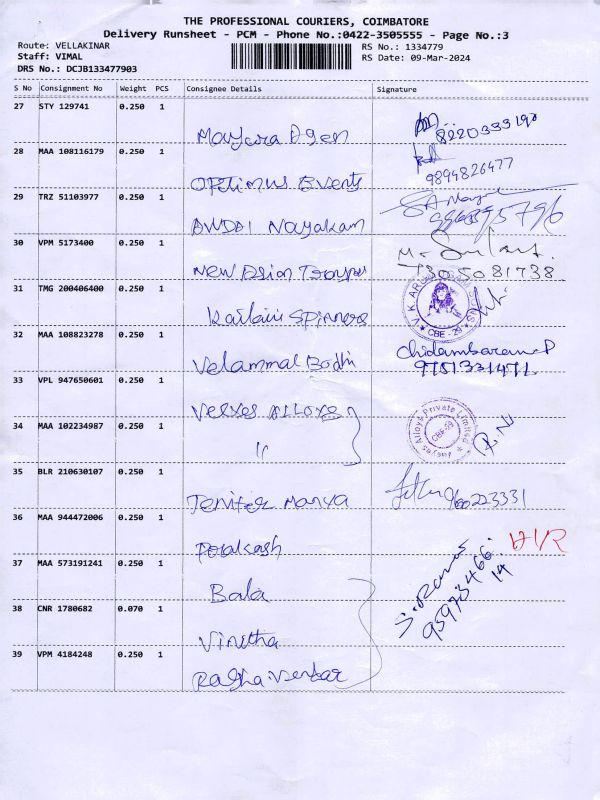 THE PROFESSIONAL COURIERS, COIMBATORE
Delivery Runsheet - PCM - Phone No.:0422-3505555 - Page No.:3
Route: VELLAKINAR
RS No.: 1334779
Staff: VIMAL
RS Date: 09-Mar-2024
DRS No.: DCJB133477903
S No Consignment No Weight PCS Consignee Details Signature
27 STY 129741 0.250 1
8220333190
28 MAA 108116179 0.250 1
OPtimus Events 9894826477
29 TRZ 51103977 0.250 1
Nayakam
30 VPM 5173400 0.250 1
New 7305081738
31 TMG 200406400 0.250 1
Kailair Spinners
CBE - 29
32 MAA 108823278 0.250 1
Velammal Bodhi Chidambaram P
9751331471
33 VPL 947650601 0.250 1
34 MAA 102234987 0.250 1
"
Alloys Private Limited
CBE-29
R. N
35 BLR 210630107 0.250 1
Jenifer Mariya
36 MAA 944472006 0.250 1
H/R
37 MAA 573191241 0.250 1
Bala
95973466
14
38 CNR 1780682 0.070 1
Vinitha
39 VPM 4184248 0.250 1